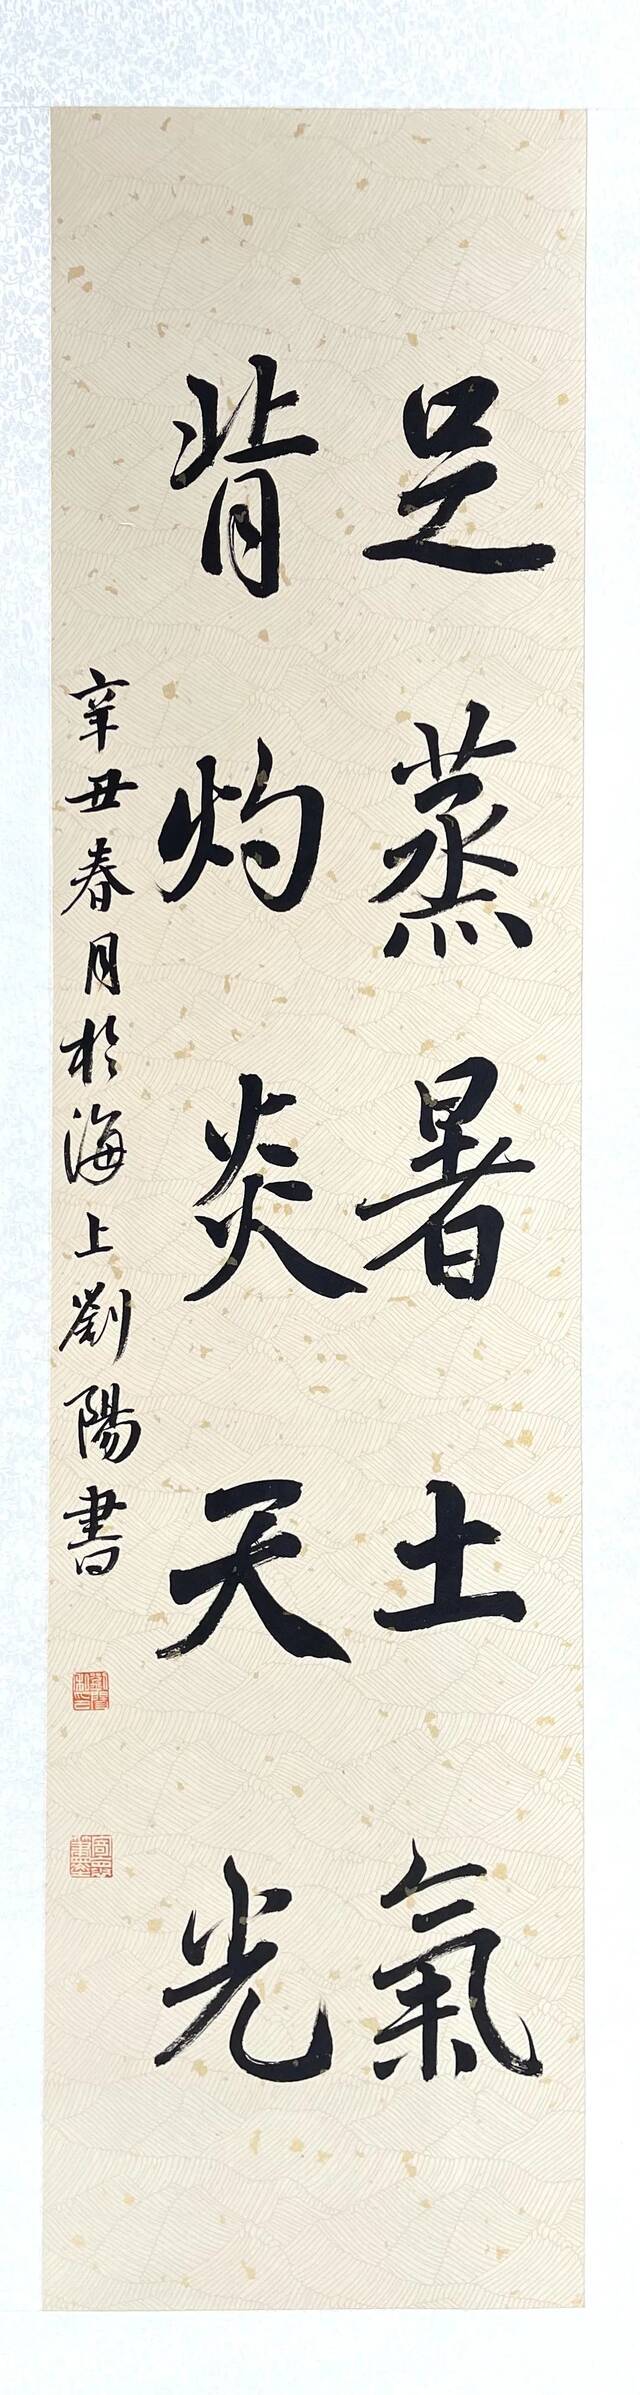 足蒸暑土氣
背灼炎天光
辛丑春月於海上劉陽書